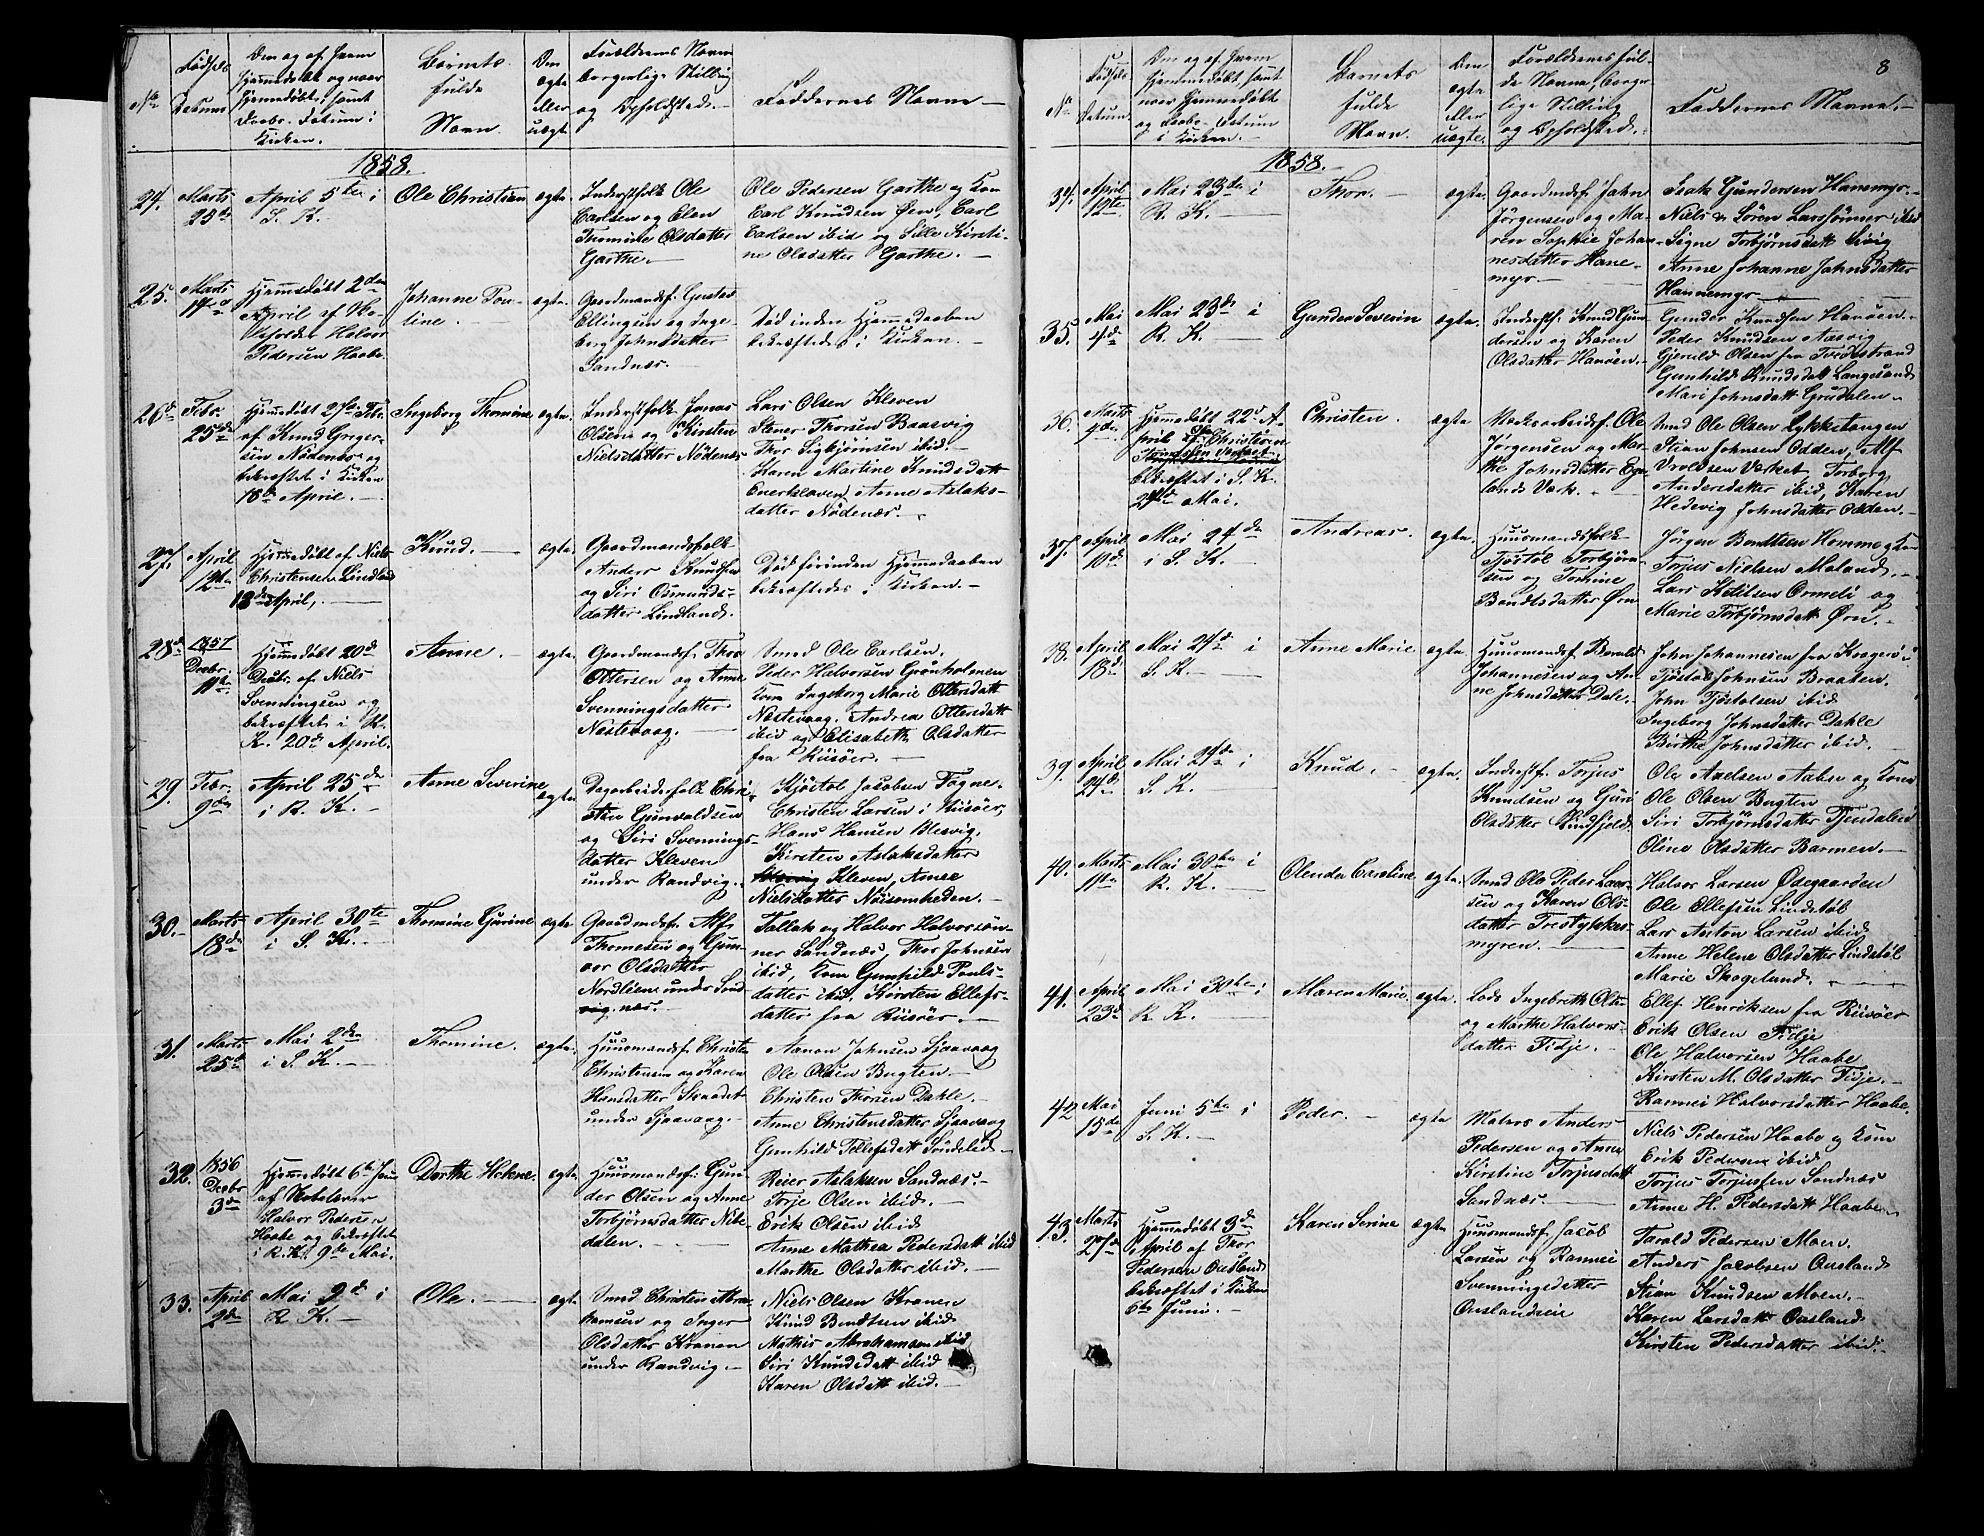 No.
Fødsels
Datum
Den og af hvem
hjemmedøbt og naar
hjemmedøbt, samt
Daabs-Datum i
Kirken.
Barnets
fulde
Navn.
Om
ægte
eller
uægte
Forældrenes Navn
borgerlige Stilling
og Opholdsted.
Faddernes Navne
1858.
24.
Marts
23de
April 5te i
S. K.
Ole Christian
ægte.
Inderstfolk Ole
Carlsen og Elen
Thomine Olsdatter
Garthe.
Ole Pedersen Garthe og Kone
Carl Knudsen Øen, Carl
Carlsen ibid og Sille Kirsti-
ne Olsdatter Garthe.
25.
Marts
Hjemmedøbt 2den
April af Kirke-
Halvor
Pedersen Haabe.
Johanne Pou-
line.
ægte
Gaardmandsf. Gustav
Ellingsen og Inge-
borg Johnsdatter
Sandnæs.
Død inden Hjemmedaaben
bekræftedes i Kirken.
26de
Febr.
25de
Hjemmedøbt 27de Febr.
af Knud Greger-
sen Nødenæs og
bekræftet i Kirken
18de April.
Ingeborg Thomine
ægte.
Inderstfolk Jonas
Olsen og Kirsten
Nielsdatter Nødenæs
Lars Olsen Kleven
Stener Thorsen Baasvig
Thor Sigbjørnsen ibid.
Karen Martine Knudsdatt
Enerkleven, Anne Aslaks-
datter Nødenæs.
27.
April
12te
Hjemmedøbt af Niels
Christensen Lindland
13de April,
Knud.
ægte.
Gaardmandsfolk
Anders Knudsen
og Siri Osmunds-
datter Lindland.
Død førinden Hjemmedaaben
bekræftedes i Kirken
28de
1857
Decbr.
11te
Hjemmedøbt 20de
Decbr. af Niels
Svenningsen og
bekræftet i R.
K. 20de April.
Anne.
ægte.
Gaardmandsf. Thor
Ottersen og Anne
Svenningsdatter
Nestevaag.
Smed Ole Carlsen.
Peder Halvorsen Grønholmen
Kone Ingeborg Marie Ottersdatt
Nestevaag. Andrea Ottersdatt
ibid og Elisabeth Olsdatter
fra Riisøer.
29.
Febr.
9de
April 25de
i R. K.
Anne Severine
ægte
Dagarbeiderfolk Chri-
sten Gunvaldsen
og Siri Svennings-
datter Kleven
under Randvig.
Kjøstol Jacobsen Fogne.
Christen Larsen i Riisøer,
Hans Hansen Blesvig.
Kirsten Aslaksdatter
Kleven, Anne
Nielsdatter Nøisomheden.
30.
Marts
18de
April 30te
i S. K.
Thomine Gurine
ægte
Gaardmdsf. Alf
Thomesen og Gun-
vor Olsdatter
Nordlien under Sand-
næs.
Tallak og Halvor Halvorsøn-
ner Sandnæs, Thor Johnsen
ibid, Kone Gunhild Pouls-
datter ibid, Kirsten Ellefs-
datter fra Riisøer.
31.
Marts
25de
Mai 2den
i S. K.
Thomine.
ægte.
Huusmandsf. Christen
Christensen og Karen
Hansdatter Skaadet
under Sjaavaag.
Aanon Johnsen Sjaavaag
Ole Olsen Bugten
Christen Thorsen Dahle.
Anne Christensdatter Sjaavaag
Gunhild Tellefsdatt Søndeled
32.
1856
Decbr
3de
Hjemmedøbt 6te Janu
af Kirkelærer
Halvor Pedersen
Haabe og bekræftet
i R. K. 9de Mai.
Dorthe Helene.
ægte.
Huusmandsf. Gun-
der Olsen og Anne
Torbjørnsdatter Nibe-
dalen.
Reier Aslaksen Sandnæs.
Torje Olsen ibid.
Erik Olsen ibid
Anne Mathea Pedersdatt ibid
Marthe Olsdatter ibid.
33.
April
2de
Mai 9de i
R. K.
Ole.
ægte
Smed Christen Abra-
hamsen og Inger
Olsdatter Kranen
under Randvig.
Niels Olsen Kranen
Knud Bendtsen ibid
Mathis Abrahamsen ibid
Siri Knudsdatt ibid
Karen Olsdatt ibid.
8
No.
Fødsels
Datum.
Den og af hvem
hjemmedøbt, samt
naar hjemmedøbt
og Daabs-Datum
i Kirken.
Barnets
fulde
Navn.
Om
ægte
eller
uægte.
Forældrenes ful-
de Navne, borger-
lige Stilling
og Opholdsted.
Faddernes Navne.
1858.
34.
April
12te
Mai 23de i
R. K.
Thor.
ægte.
Gaardmandsf. John
Jørgensen og Ma-
ren Sophie Johan-
nesdatter Hane-
myr.
Isak Gundersen Hanemyr.
Niels & Søren Larssønner ibid
Signe Torbjørnsdatt
Anne Johanne Johnsdatter
Hannemyr
35.
Mai
4de
Mai 23de i
R. K.
Gunder Severin
ægte.
Inderstf. Knud Gun-
dersen og Karen
Olsdatter Havøen.
Gunder Knudsen Havøen.
Peder Knudsen Aasvig
Gjeruld Olsen fra Tvedestrand
Gunhild Knudsdatt Langesand
Mari Johnsdatt Grødalen
36.
Marts
9de
Hjemmedøbt 22de A-
pril af Christian
bekræftet i S. K.
24de Mai.
Christen.
ægte
Værksarbeidsf. Ole
Jørgensen og Mar-
the Johnsdatter Ege-
lands Værk.
Smed Ole Olsen Lykkestangen
Stian Johnsen Odden, Alf
Vroldsen Værket, Torborg
Andersdatter ibid, Karen
Hedevig Johnsdatter Odden.
37.
April
10de
Mai 24de
i S. K.
Andreas.
ægte.
Huusmandsfolk
Tjøstol Torbjørn-
sen og Tomine
Bendtsdatter Ørn
Jørgen Bendtsen Homme & Kone
Torjus Nielsen Moland.
Lars Ketilsen Ormeli og
Marie Torbjørnsdatt Ørn.
38.
April
18de
Mai 24de i
S. K.
Anne Marie
ægte.
Huusmandsf. Harald
Johannesen og An-
ne Johnsdatter Dale.
John Johannesen fra Kragerø
Tjøstol Johnsen Braaten.
John Tjøstolsen ibid
Ingeborg Johnsdatter Dahle
Birthe Johnsdatter ibid.
39.
April
24de
Mai 24de i
S. K.
Knud.
ægte.
Inderstf. Torjus
Knudsen og Guri
Olsdatter Lindfjeld.
Ole Axelsen Aabn og Kone
Ole Olsen Bugten
Siri Torbjørnsdatter Tjendalen
Oline Olsdatter Barmen.
40.
Marts
11te
Mai 30te i
R. K.
Olenda Caroline
ægte.
Smed Ole Peder Lar-
sen og Karen Ols-
datter Trestykkes-
myren.
Halvor Larsen Ødegaarden
Ole Ellefsen Lindstøl
Lars Anton Larsen ibid
Anne Helene Olsdatter Lindstøl
Marie Skogeland.
41.
April
23de
Mai 30te i
R. K.
Maren Marie
ægte.
Lods Ingebreth Olsen
og Marthe Halvors-
datter Fidje.
Ellef Henriksen fra Riisøer
Erik Olsen Fidje
Ole Halvorsen Haabe
Kirsten M. Olsdatter Fidje.
Ramnei Halvorsdatter Haabe.
42
Mai
15de
Juni 5te i
S. K.
Peder.
ægte
Matros Anders
Pedersen og Anne
Kirstine Torjusdatt
Sandnæs.
Niels Pedersen Haabe og Kone
Erik Pedersen ibid.
Torjus Torjussen Sandnæs
Anne H. Pedersdatt Haabe
43.
Marts
27de
Hjemmedøbt 3de
April af Thor
Pedersen Ousland
bekræftet i Kirken
6te Juni.
Karen Serine
ægte
Huusmandsf. Jacob
Larsen og Ramnei
Svenningsdatter
Ouslandseie
Tarald Pedersen Moen.
Anders Jacobsen Ousland
Stian Knudsen Moen.
Karen Larsdatt Ousland
Kirsten Pedersdatter ibid.